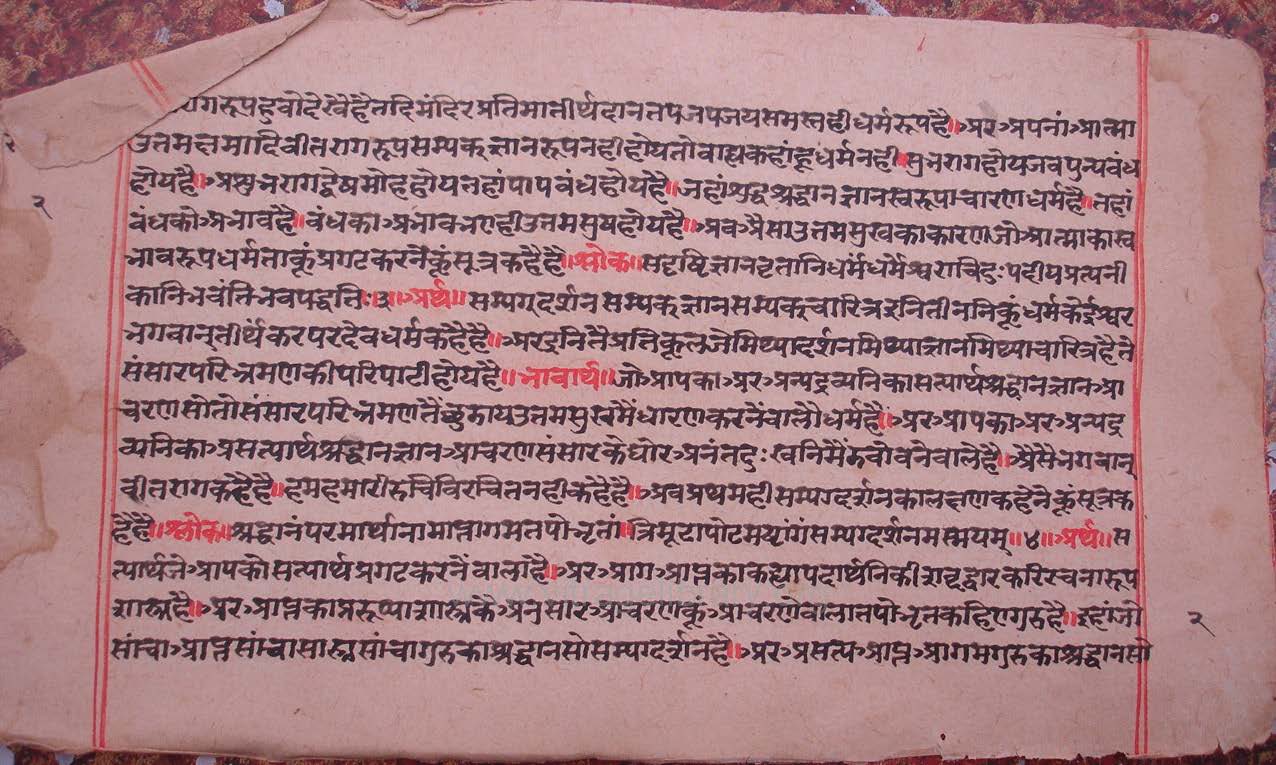 रागरूप हुवो देखै है तदि मंदिर प्रतिमा तीर्थ दान तप जप जय समस्त ही धर्मरूप है॥ अर अपनां आत्मा
उत्तमक्षमादि वीतरागरूप सम्यक्ज्ञानरूप नही होय तो वाह्य कहां हू धर्म नही॥ सुभराग होय जब पुन्यबंध
होय है॥ अशुभ राग द्वेष मोह होय तहां पापबंध होय है॥ जहां शुद्ध श्रद्धान ज्ञान स्वरूपाचारण धर्म है॥ तहां
बंध को अभाव है॥ बंध का अभाव भए ही उत्तम सुष होय है॥ अब अैसा उत्तम सुख का कारण जो आत्मा का स्व
भावरूप धर्म ताकूं प्रगट करनेंकूं सूत्र कहै है॥ श्लोक॥ सदृष्टि ज्ञानवृतानि धर्मं धर्मेश्वरा विदुः यदीय प्रत्यनी
कानि भवंति भवपद्धति ३ अर्थ॥ सम्यग्दर्शन सम्यक्ज्ञान सम्यक्चारित्र इनि तीननिकूं धर्म के ईश्वर
भगवान् तीर्थंकर परदेव धर्म कहै है॥ अर इनितै प्रतिकूल जे मिथ्यादर्शन मिथ्याज्ञान मिथ्याचारित्र है ते
संसार परिभ्रमण की परिपाटी होय है॥ भावार्थ॥ जो आपका अर अन्य द्रव्यनिका सत्यार्थ श्रद्धान ज्ञान आ
चरण सो तो संसार परिभ्रमणतैं छुडाय उत्तम सुखमैं धारण करनेंवालौ धर्म है॥ अर आपका अर अन्य द्र
व्यनिका असत्यार्थ श्रद्धान ज्ञान आचरण संसार के घोर अनंत दुःखनिमैं डबोवनेवाले है॥ अैसै भगवान्
वीतराग कहै है॥ हम हमारी रुचि विरचित नही कहै है॥ अब प्रथम ही सम्यग्दर्शन का लक्षण कहनेकूं सूत्र क
है है॥ श्लोक॥ श्रद्धानं परमार्थानामाप्तागमतपोभृतां॥ त्रिमूढापोढमष्टांगं सम्यग्दर्शनमस्मयम्॥४॥ अर्थ॥ स
त्यार्थ जे आपकौ सत्यार्थ प्रगट करनेंवाला है॥ अर आग आप्तका कह्या पदार्थनिकी शब्दद्वारकरि रचनारूप
शास्त्र है॥ अर आप्तका प्ररूप्या शास्त्रकै अनुसार आचरणकूं आचरणेवाला तपोभृत कहिए गुरु है॥ इहां जो
सांचा आप्त सांचा सास्त्र सांचा गुरु का श्रद्धान सो सम्यग्दर्शन है॥ अर असत्य आप्त आगम गुरु का श्रद्धान सो
२
२